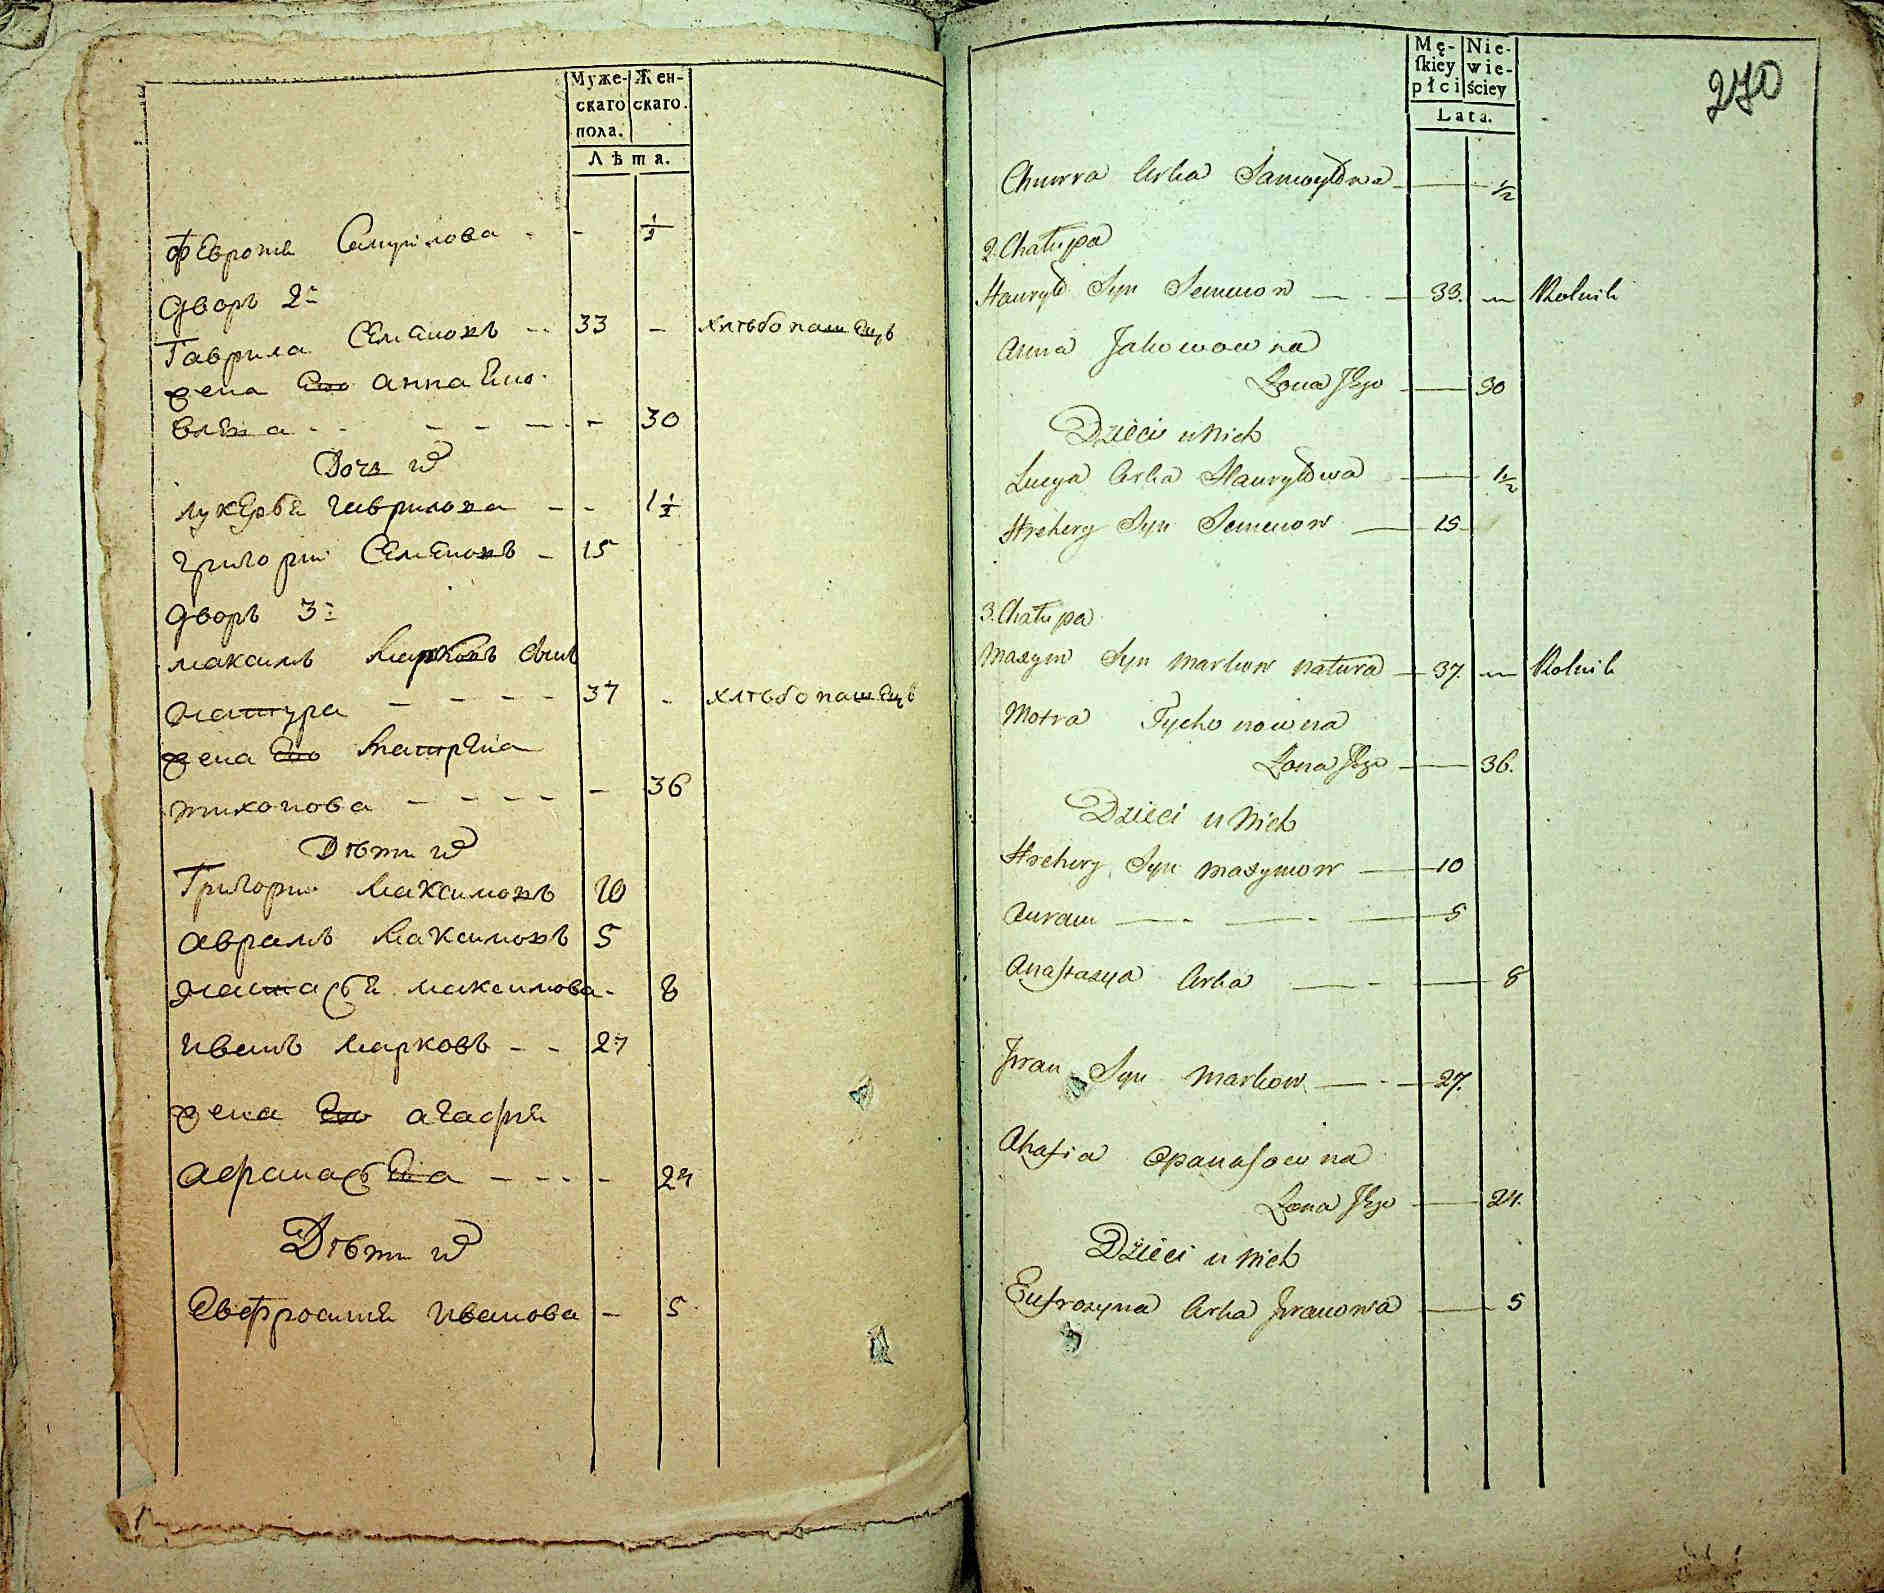 Муже-
скаго
пола.
Жен-
скаго.
Лѣта.
Феврония Самуилова - - ½
Дворъ 2й
Гаврила Семеновъ - - 33 - хлѣбопашецъ
жена Его Анна Яко-
влева - - - - - - 30
Дочь ихъ
Лукерья Гаврилова - - 1½
Григорий Семеновъ - 15
Дворъ 3й
Максимъ Марковъ сынъ
Натура - - - - 37 - хлѣбопашецъ
жена Его Матрена
Тихонова - - - - - 36
Дѣти ихъ
Григорий Максимовъ 10
Аврамъ Максимовъ 5
Настасья Максимова - 8
Иванъ Марковъ - - 27
жена Его Агафия
Афанасьева - - - - 24
Дѣти ихъ
Евфросиния Иванова - 5
Mę-
ſkiey
płci
Nie-
wie-
ściey
Lata.
270
Chwrra Córka Samoyłowa — ½
2. Chałupa
Hawryło Syn Semenow — - — 33. — Rolnik
Anna Jakowowna
Żona Jego — 30
Dzieci u Nich
Lucya Córka Hawryłowa — 1½
Hrehory Syn Semenow — 15
3. Chałupa
Maxym Syn Markow Natura — 37. — Rolnik
Motra Tychonowna
Żona Jego — 36.
Dzieci u Nich
Hrehory Syn Maxymow — 10
Awram — - — - — 5
Anaſtazya Córka — - — 8
Iwan Syn Markow — - — 27.
Ahafia Opanaſowna
Żona Jego — 24.
Dzieci u Nich
Eufrozyna Córka Iwanowa — 5